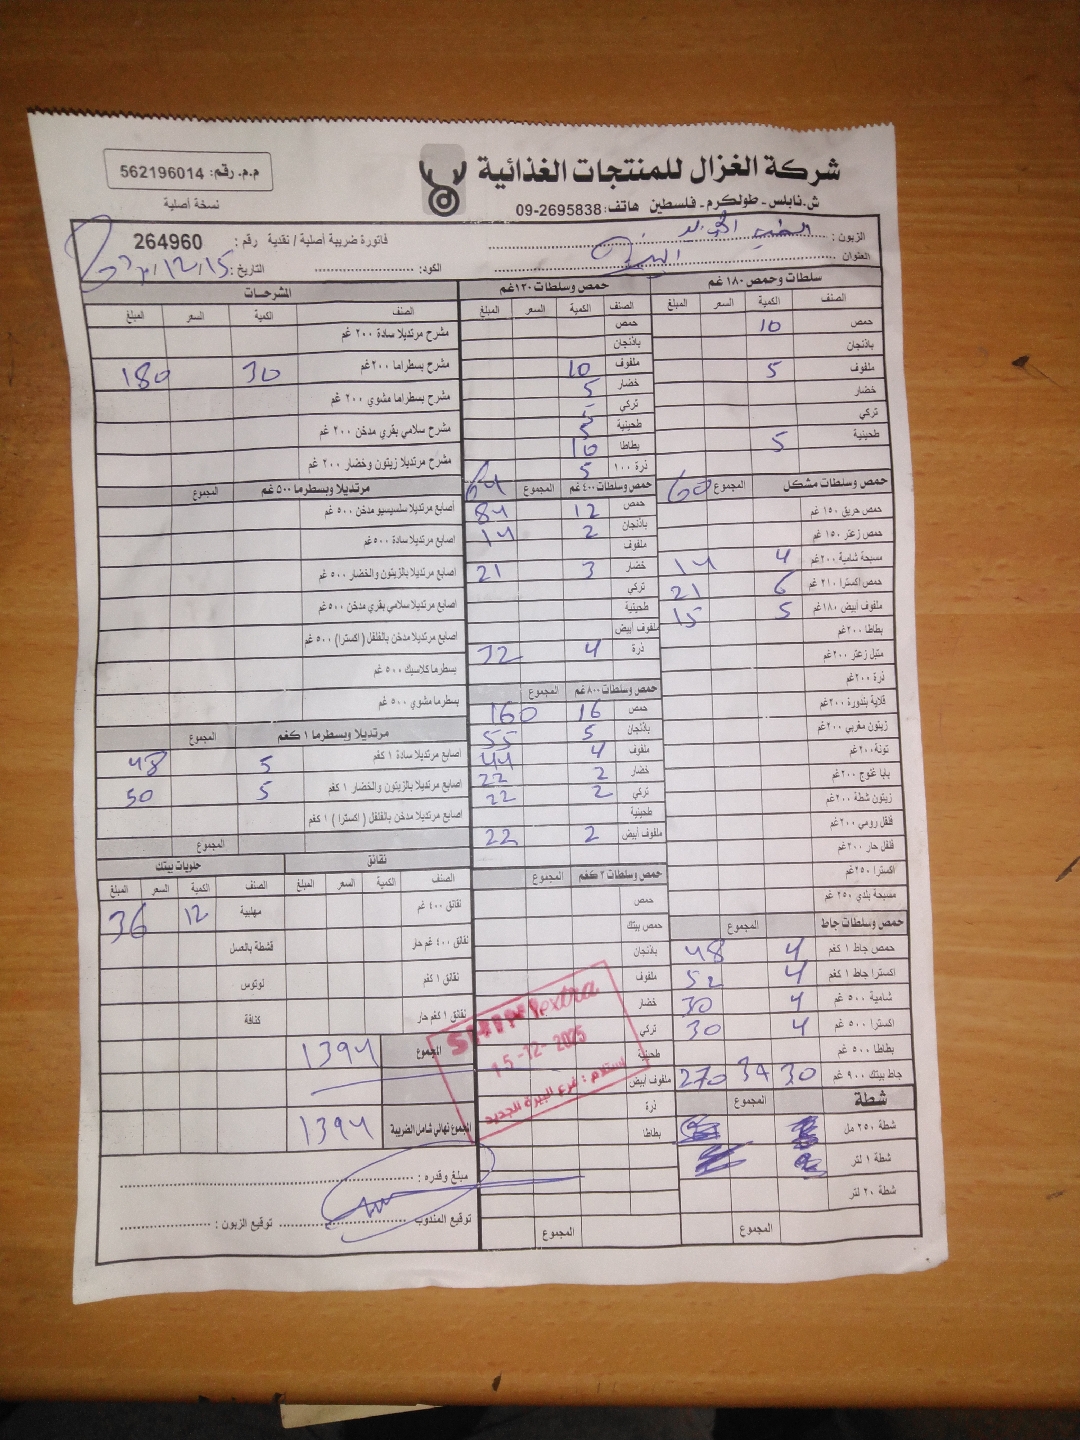 شركة الغزال للمنتجات الغذائية
ش.نابلس - طولكرم - فلسطين هاتف: 09-2695838
م.م. رقم: 562196014
نسخة أصلية
الزبون:
العنوان
فاتورة ضريبية أصلية / نقدية رقم: 264960
الكود: التاريخ: 15/12/
سلطات وحمص ١٨٠ غم
الصنف الكمية السعر المبلغ
حمص 10
باذنجان
ملفوف 5
خضار
تركي
طحينية 5
60
حمص وسلطات مشكل المجموع
حمص حريق ١٥٠ غم
حمص زعتر ١٥٠ غم
مسبحة شامية ٢٠٠غم 4 14
حمص اكسترا ٢١٠ غم 6 21
ملفوف أبيض ١٨٠غم 5 15
بطاطا ٢٠٠غم
متبل زعتر ٢٠٠غم
ذرة ٢٠٠غم
قلاية بندورة ٢٠٠غم
زيتون مغربي ٢٠٠غم
تونة٢٠٠غم
بابا غنوج ٢٠٠غم
زيتون شطة ٢٠٠غم
فلفل رومي ٢٠٠غم
فلفل حار ٢٠٠غم
اكسترا ٢٥٠غم
مسبحة بلدي ٢٥٠ غم
حمص وسلطات جاط المجموع
حمص جاط ١ كغم 4 48
اكسترا جاط ١ كغم 4 52
شامية ٥٠٠ غم 4 30
اكسترا ٥٠٠ غم 4 30
بطاطا ٥٠٠ غم
جاط بيتك ٩٠٠ غم 30 34 270
شطة المجموع
شطة ٢٥٠ مل
شطة ١ لتر
شطة ٢٠ لتر
المجموع
حمص وسلطات ١٣٠غم
الصنف الكمية السعر المبلغ
حمص
باذنجان
ملفوف 10
خضار 5
تركي 5
طحينية 5
بطاطا 10
ذرة ١٠٠ 5
64
حمص وسلطات ٤٠٠غم المجموع
حمص 12 84
باذنجان 2 14
ملفوف
خضار 3 21
تركي
طحينية
ملفوف أبيض
ذرة 4 32
حمص وسلطات ٨٠٠غم المجموع
حمص 16 160
باذنجان 5 55
ملفوف 4 44
خضار 2 22
تركي 2 22
طحينية
ملفوف أبيض 2 22
حمص وسلطات ٣ كغم المجموع
حمص
حمص بيتك
باذنجان
ملفوف
خضار
تركي
طحينية
ملفوف أبيض
ذرة
بطاطا
المجموع
SHINI extra
15-12-2025
استلام: فرع البيرة الجديد
المشرحات
الصنف الكمية السعر المبلغ
مشرح مرتديلا سادة ٢٠٠ غم
مشرح بسطراما ٢٠٠غم 30 180
مشرح بسطراما مشوي ٢٠٠ غم
مشرح سلامي بقري مدخن ٢٠٠ غم
مشرح مرتديلا زيتون وخضار ٢٠٠ غم
مرتديلا وبسطرما ٥٠٠ غم المجموع
اصابع مرتديلا سلسيسيو مدخن ٥٠٠ غم
اصابع مرتديلا سادة ٥٠٠غم
اصابع مرتديلا بالزيتون والخضار ٥٠٠ غم
اصابع مرتديلا سلامي بقري مدخن ٥٠٠غم
اصابع مرتديلا مدخن بالفلفل (اكسترا) ٥٠٠ غم
بسطرما كلاسيك ٥٠٠ غم
بسطرما مشوي ٥٠٠ غم
مرتديلا وبسطرما ١ كغم المجموع
أصابع مرتديلا سادة ١ كغم 5 48
اصابع مرتديلا بالزيتون والخضار ١ كغم 5 50
اصابع مرتديلا مدخن بالفلفل (اكسترا) ١ كغم
المجموع
نقانق
الصنف الكمية السعر المبلغ
نقانق ٤٠٠ غم
نقانق ٤٠٠ غم حار
نقانق ١ كغم
نقانق ١ كغم حار
حلويات بيتك
الصنف الكمية السعر المبلغ
مهلبية 12 36
قشطة بالعسل
لوتوس
كنافة
المجموع 1394
المجموع نهائي شامل الضريبة 1394
مبلغ وقدره:
توقيع المندوب توقيع الزبون: